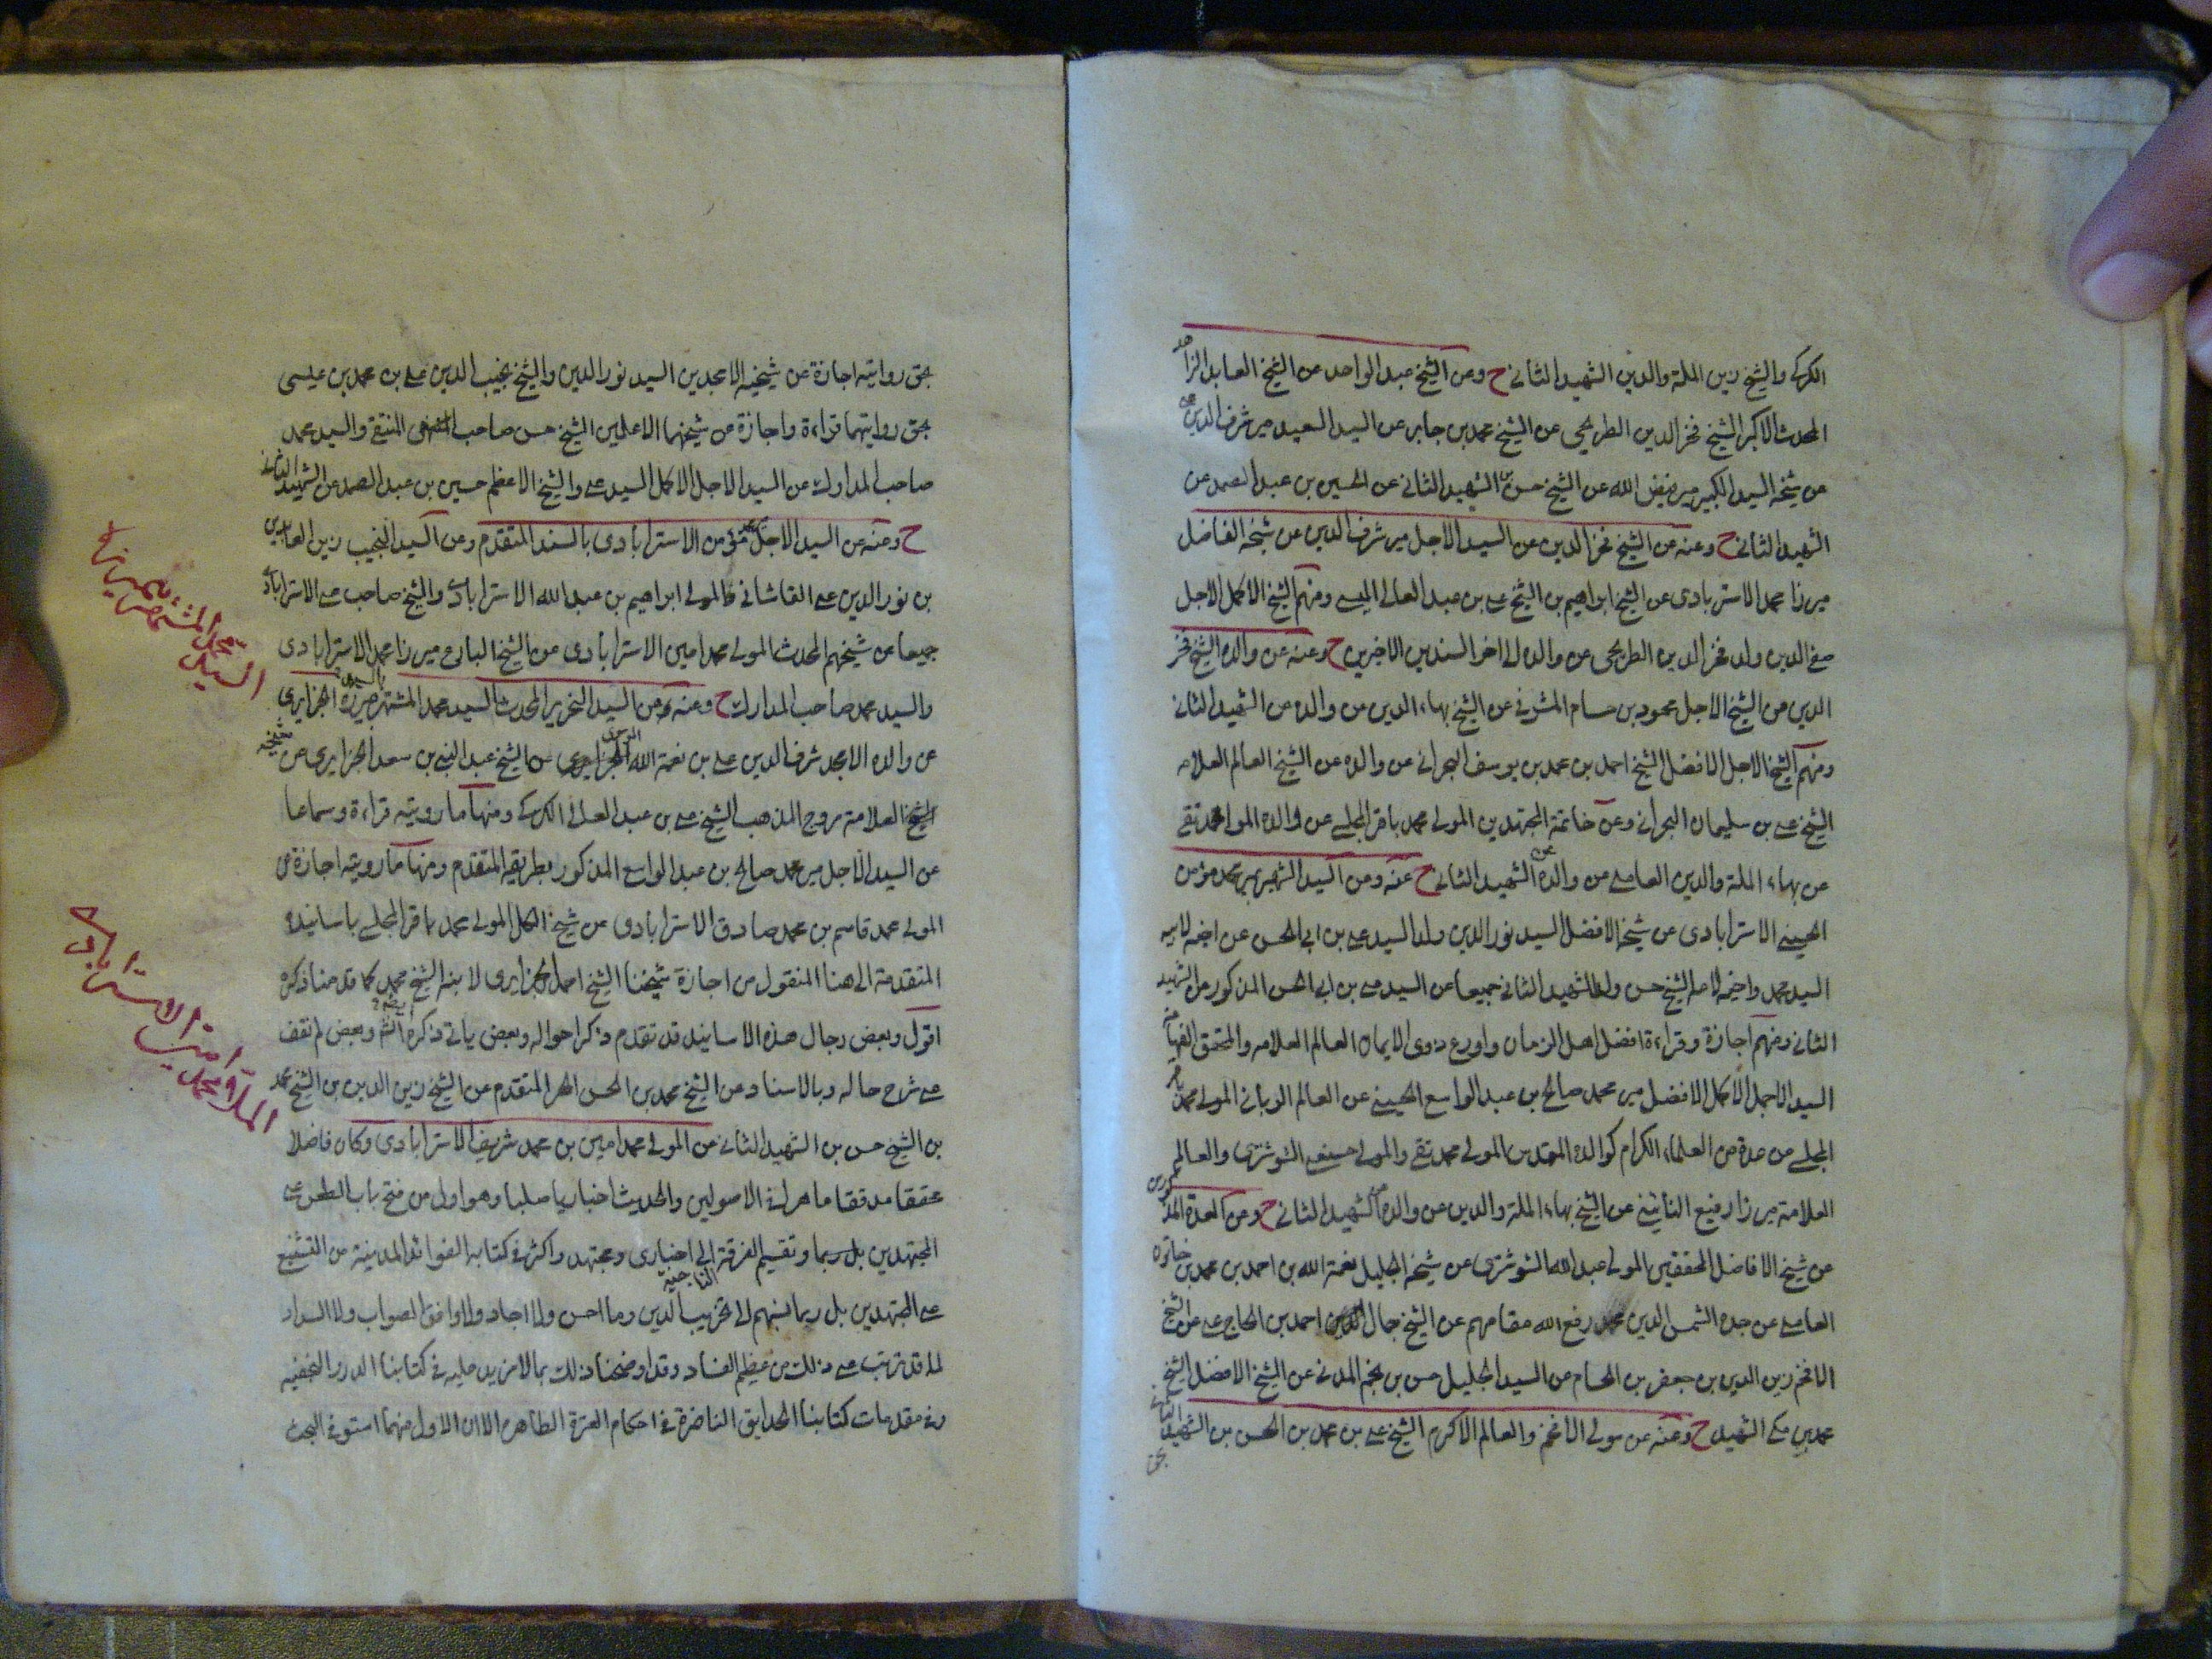 الكركي والشيخ زين الملة والدين الشهيد الثاني ح وعن الشيخ عبد الواحد عن الشيخ العابد الزاهد
المحدث الاكبر الشيخ فخر الدين الطريحي عن الشيخ محمد بن جابر عن السيد السعيد مير شرف الدين علي
عن شيخه السيد الكبير مير فيض الله عن الشيخ حسن بن الشهيد الثاني عن الحسين بن عبد الصمد عن
الشهيد الثاني ح وعنه عن الشيخ فخر الدين عن السيد الاجل مير شرف الدين عن شيخه الفاضل
ميرزا محمد الاسترابادي عن الشيخ ابراهيم بن الشيخ علي بن عبد العالي الميسي ومنهم الشيخ الاكمل الاجل
صفي الدين ولد فخر الدين الطريحي عن والده الى اخر السندين الاخيرين ح وعنه عن والده الشيخ فخر
الدين عن الشيخ الاجل محمود بن حسام المشرفي عن الشيخ بهاء الدين عن والده عن الشهيد الثاني
ومنهم الشيخ الاجل الافضل الشيخ احمد بن محمد بن يوسف البحراني عن والده عن الشيخ العالم العلامه
الشيخ علي بن سليمان البحراني وعن خاتمة المجتهدين المولى محمد باقر المجلسي عن والده المولى محمد تقي
عن بهاء الملة والدين العاملي عن والده عن الشهيد الثاني ح عنه وعن السيد الشهير مير محمد مؤمن
الحسيني الاسترابادي عن شيخه الافضل السيد نور الدين ولد السيد علي بن ابي الحسن عن اخيه لابيه
السيد محمد واخيه لامه الشيخ حسن ولد الشهيد الثاني جميعا عن السيد علي بن ابي الحسن المذكور عن الشهيد
الثاني ومنهم اجازة وقراءة افضل اهل الزمان واورع ذوي الايمان العالم العلامه والمحقق الفهامه
السيد الاجل الاكمل الافضل مير محمد صالح بن عبد الواسع الحسيني عن العالم الرباني المولى محمد باقر
المجلسي عن عدة من العلماء الكرام كوالده المقدس المولى محمد تقي والمولى حسنعلي التوشتري والعالم
العلامة ميرزا رفيع النائيني عن الشيخ بهاء الملة والدين عن والده عن الشهيد الثاني ح وعن العدة المذكورين
عن شيخ الافاضل المحققين المولى عبد الله التوشتري عن شيخه الجليل نعمة الله بن احمد بن محمد بن خاتون
العاملي عن جده الشمس الدين محمد رفع الله مقامهم عن الشيخ جمال الدين احمد بن الحاج علي عن الشيخ
الافخر زين الدين بن جعفر بن الحسام عن السيد الجليل حسن بن نجم المدني عن الشيخ الافضل الشيخ
محمد بن مكي الشهيد ح وعنه عن مولى الافخم والعالم الاكرم الشيخ علي بن محمد بن الحسن بن الشهيد الثاني
بحق
بحق روايته اجازة عن شيخيه الامجدين السيد نور الدين والشيخ نجيب الدين علي بن محمد بن عيسى
بحق روايتهما قراءة واجازة عن شيخهما الاعلمين الشيخ حسن صاحب المنتقى والسيد محمد
صاحب المدارك عن السيد الاجل الاكمل السيد علي والشيخ الاعظم حسين بن عبد الصمد عن الشهيد الثاني
ح وعنه عن السيد الاجل محمد مؤمن الاسترابادي بالسند المتقدم وعن السيد النجيب زين العابدين
بن نور الدين علي القاشاني والمولى ابراهيم بن عبد الله الاسترابادي والشيخ صاحب علي الاسترابادي
جميعا عن شيخهم المحدث المولى محمد امين الاسترابادي عن الشيخ البارع ميرزا محمد الاسترابادي
والسيد محمد صاحب المدارك ح وعنه عن السيد النحرير المحدث السيد محمد المشتهر بالسيد ميرزا الجزايري
عن والده الامجد شرف الدين علي بن نعمة الله الموسوي الجزايري عن الشيخ عبد النبي بن سعد الجزايري عن شيخه
الشيخ العلامة مروج المذهب الشيخ علي بن عبد العالي الكركي ومنها ما رويته قراءة وسماعا
عن السيد الاجل مير محمد صالح بن عبد الواسع المذكور بطريقه المتقدم ومنها ما رويته اجازة عن
المولى محمد قاسم بن محمد صادق الاسترابادي عن شيخ الكل المولى محمد باقر المجلسي باسانيده
المتقدمة الى هنا المنقول من اجازة شيخنا الشيخ احمد الجزايري لابنه الشيخ محمد كما قدمنا ذكره
اقول وبعض رجال هذه الاسانيد قد تقدم ذكر احواله وبعض ياتي ذكره انشاء الله وبعض لم نقف
على شرح حاله وبالاسناد عن الشيخ محمد بن الحسن الحر المتقدم عن الشيخ زين الدين بن الشيخ محمد
بن الشيخ حسن بن الشهيد الثاني عن المولى محمد امين بن محمد شريف الاسترابادي وكان فاضلا
محققا مدققا ماهرا في الاصولين والحديث اخباريا صلبا وهو اول من فتح باب الطعن على
المجتهدين بل ربما وتقسيم الفرقة الناجية الى اخباري ومجتهد واكثر في كتابه الفوائد المدينة من التشنيع
على المجتهدين بل ربما نسبهم الى تخريب الدين وما احسن ولا اجاد ولا وافق الصواب ولا السداد
لما قد ترتب على ذلك من عظيم الفساد وقد اوضحنا ذلك بما لا مزيد عليه في كتابنا الدرر النجفيه
وفي مقدمات كتابنا الحدايق الناضرة في احكام العترة الطاهره الا ان الاول منهما استوفى البحث
السيد محمد المشتهر بميرزا
الملا محمد امين الاسترابادي